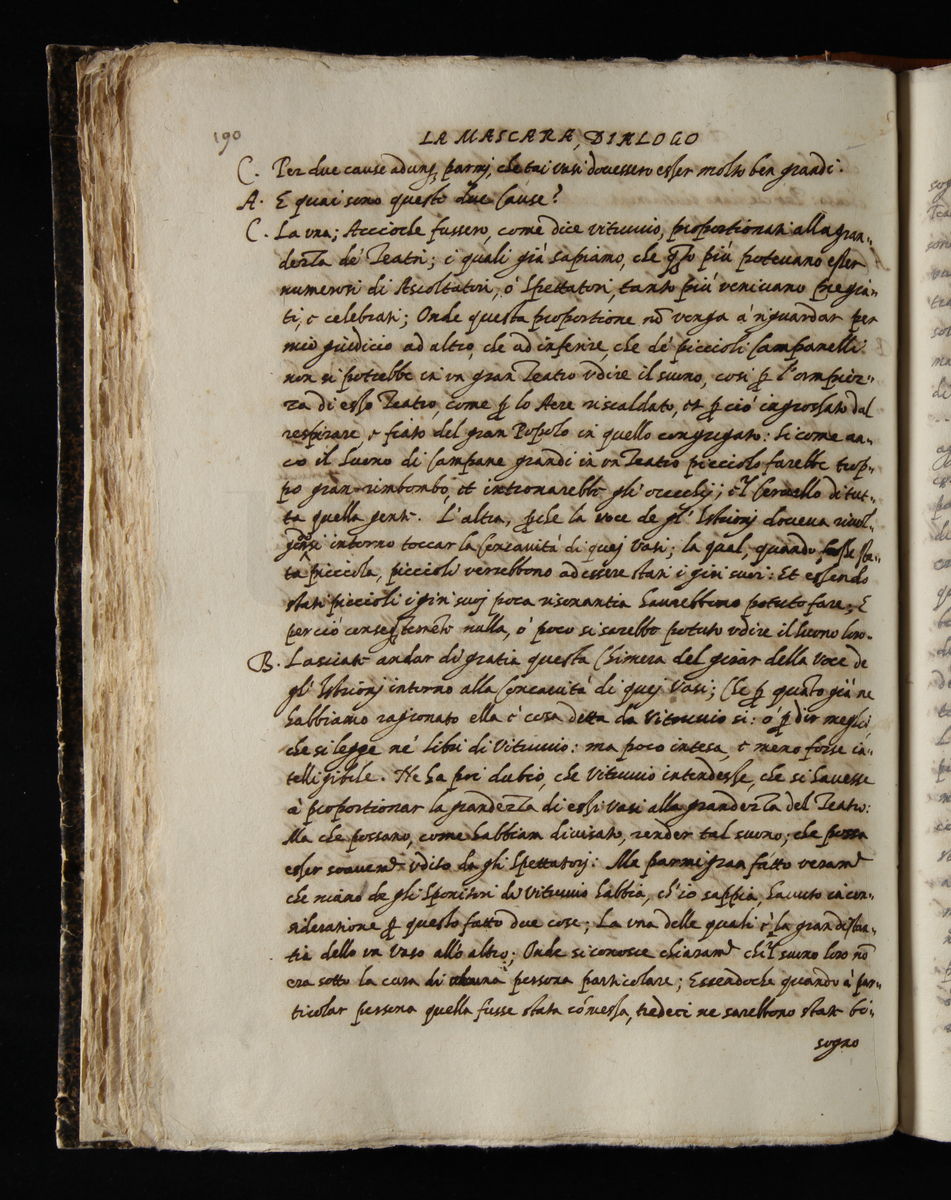 190
LA MASCARA, DIALOGO
C. Per due cause adunq, parmj, che tai vasi douessero esser molto ben grandi.
A. E quai sono queste due Cause?
C. La vna; Acciocle fussero, come dice vitruuio, proportionati alla gran-
dezza de' Teatri; i quali già sapiamo, che qto più poteuano esser
numerosi di Ascoltatori, ò Spettatori, tanto più veniuano pregia-
ti, e celebrati; Onde questa proportione nō venga à riguardar per
mio giudicio ad altro, che ad inferire, che de' piccioli Campanelli
non si potrebbe in vn gran Teatro vdire il suono, così p l'ampiez-
za di esso Teatro, come p lo Aere riscaldato, et p ciò ingrossato dal
respirare e fiato del gran Popolo in quello congregato: Si come an-
co il suono di Campane grandi in vn Teatro picciolo farebbe trop-
po gran rimbombo, et intronarebbe gli orecchij; e'l Ceruello di tut-
ta quella gente. L'altra, pche la voce de gl' Istrionj doueua riuol-
gendosi intorno toccar la Concauità di quej Vasi; la qual, quando fosse sta-
ta picciola, piccioli verrebbono ad essere stati i giri suoi: Et essendo
stati piccioli i giri suoj poca risonantia haurebbono potuto fare; E
perciò conseqtemēte nulla, ò poco si sarebbe potuto vdire il suono loro.
B. Lasciate andar di gratia questa Chimera del girar della Voce de
gl' Istrionj intorno alla Concauità di quej Vasi; Che p quāto già ne
habbiamo ragionato ella è cosa detta da Vitruuio si: ò p dir meglio
che si legge ne' libri di Vitruuio: ma poco intesa, e meno forse in-
telligibile. Ne ha poi dubio, che Vitruuio intendesse, che si hauesse
à proportionar la grandezza di essi vasi alla grandezza del Teatro:
Ma che possano, come habbiam diuisato, render tal suono; che possa
esser soauemē vdito da gli Spettatorj: Ma parmi gran fatto veramē
che niuno de gli Spositori di Vitruuio habbia, ch'io sappia, hauuto in con-
sideratione p questo fatto due cose; La vna delle quali è la gran distan-
tia dello vn Vaso all'o altro; Onde si conosce chiaramē che'l suono loro nō
era sotto la cura di persona particolare; Essendoche quando à par-
ticolar persona quella fusse stata cōmessa, tredeci ne sarebbono state bi-
sogno